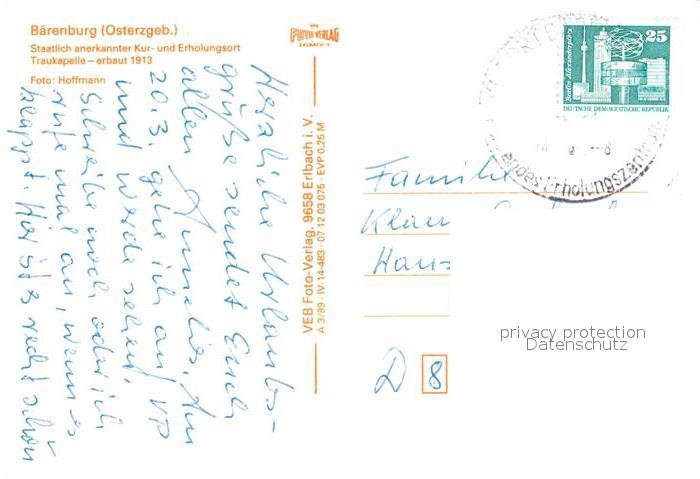 Bärenburg (Osterzgeb.)
Staatlich anerkannter Kur- und Erholungsort
Traukapelle – erbaut 1913
Foto: Hoffmann
FOTO VERLAG
ERLBACH
Herzliche Urlaubs-
grüße sendet Euch
allen Annelis. Am
20.3. gehe ich an VP
und werde sehen,
Schreibe noch oder ich
rufe mal an, wenn es
klappt. Hier ist es recht schön
VEB Foto-Verlag, 9658 Erlbach i. V.
A 3/89 · IV-14-483 · 07 12 03 075 · EVP 0,25 M
25
Berlin, Alexanderplatz
DEUTSCHE DEMOKRATISCHE REPUBLIK
Erholungszentrum
Familie
Klaus
Hans
D 8
privacy protection
Datenschutz